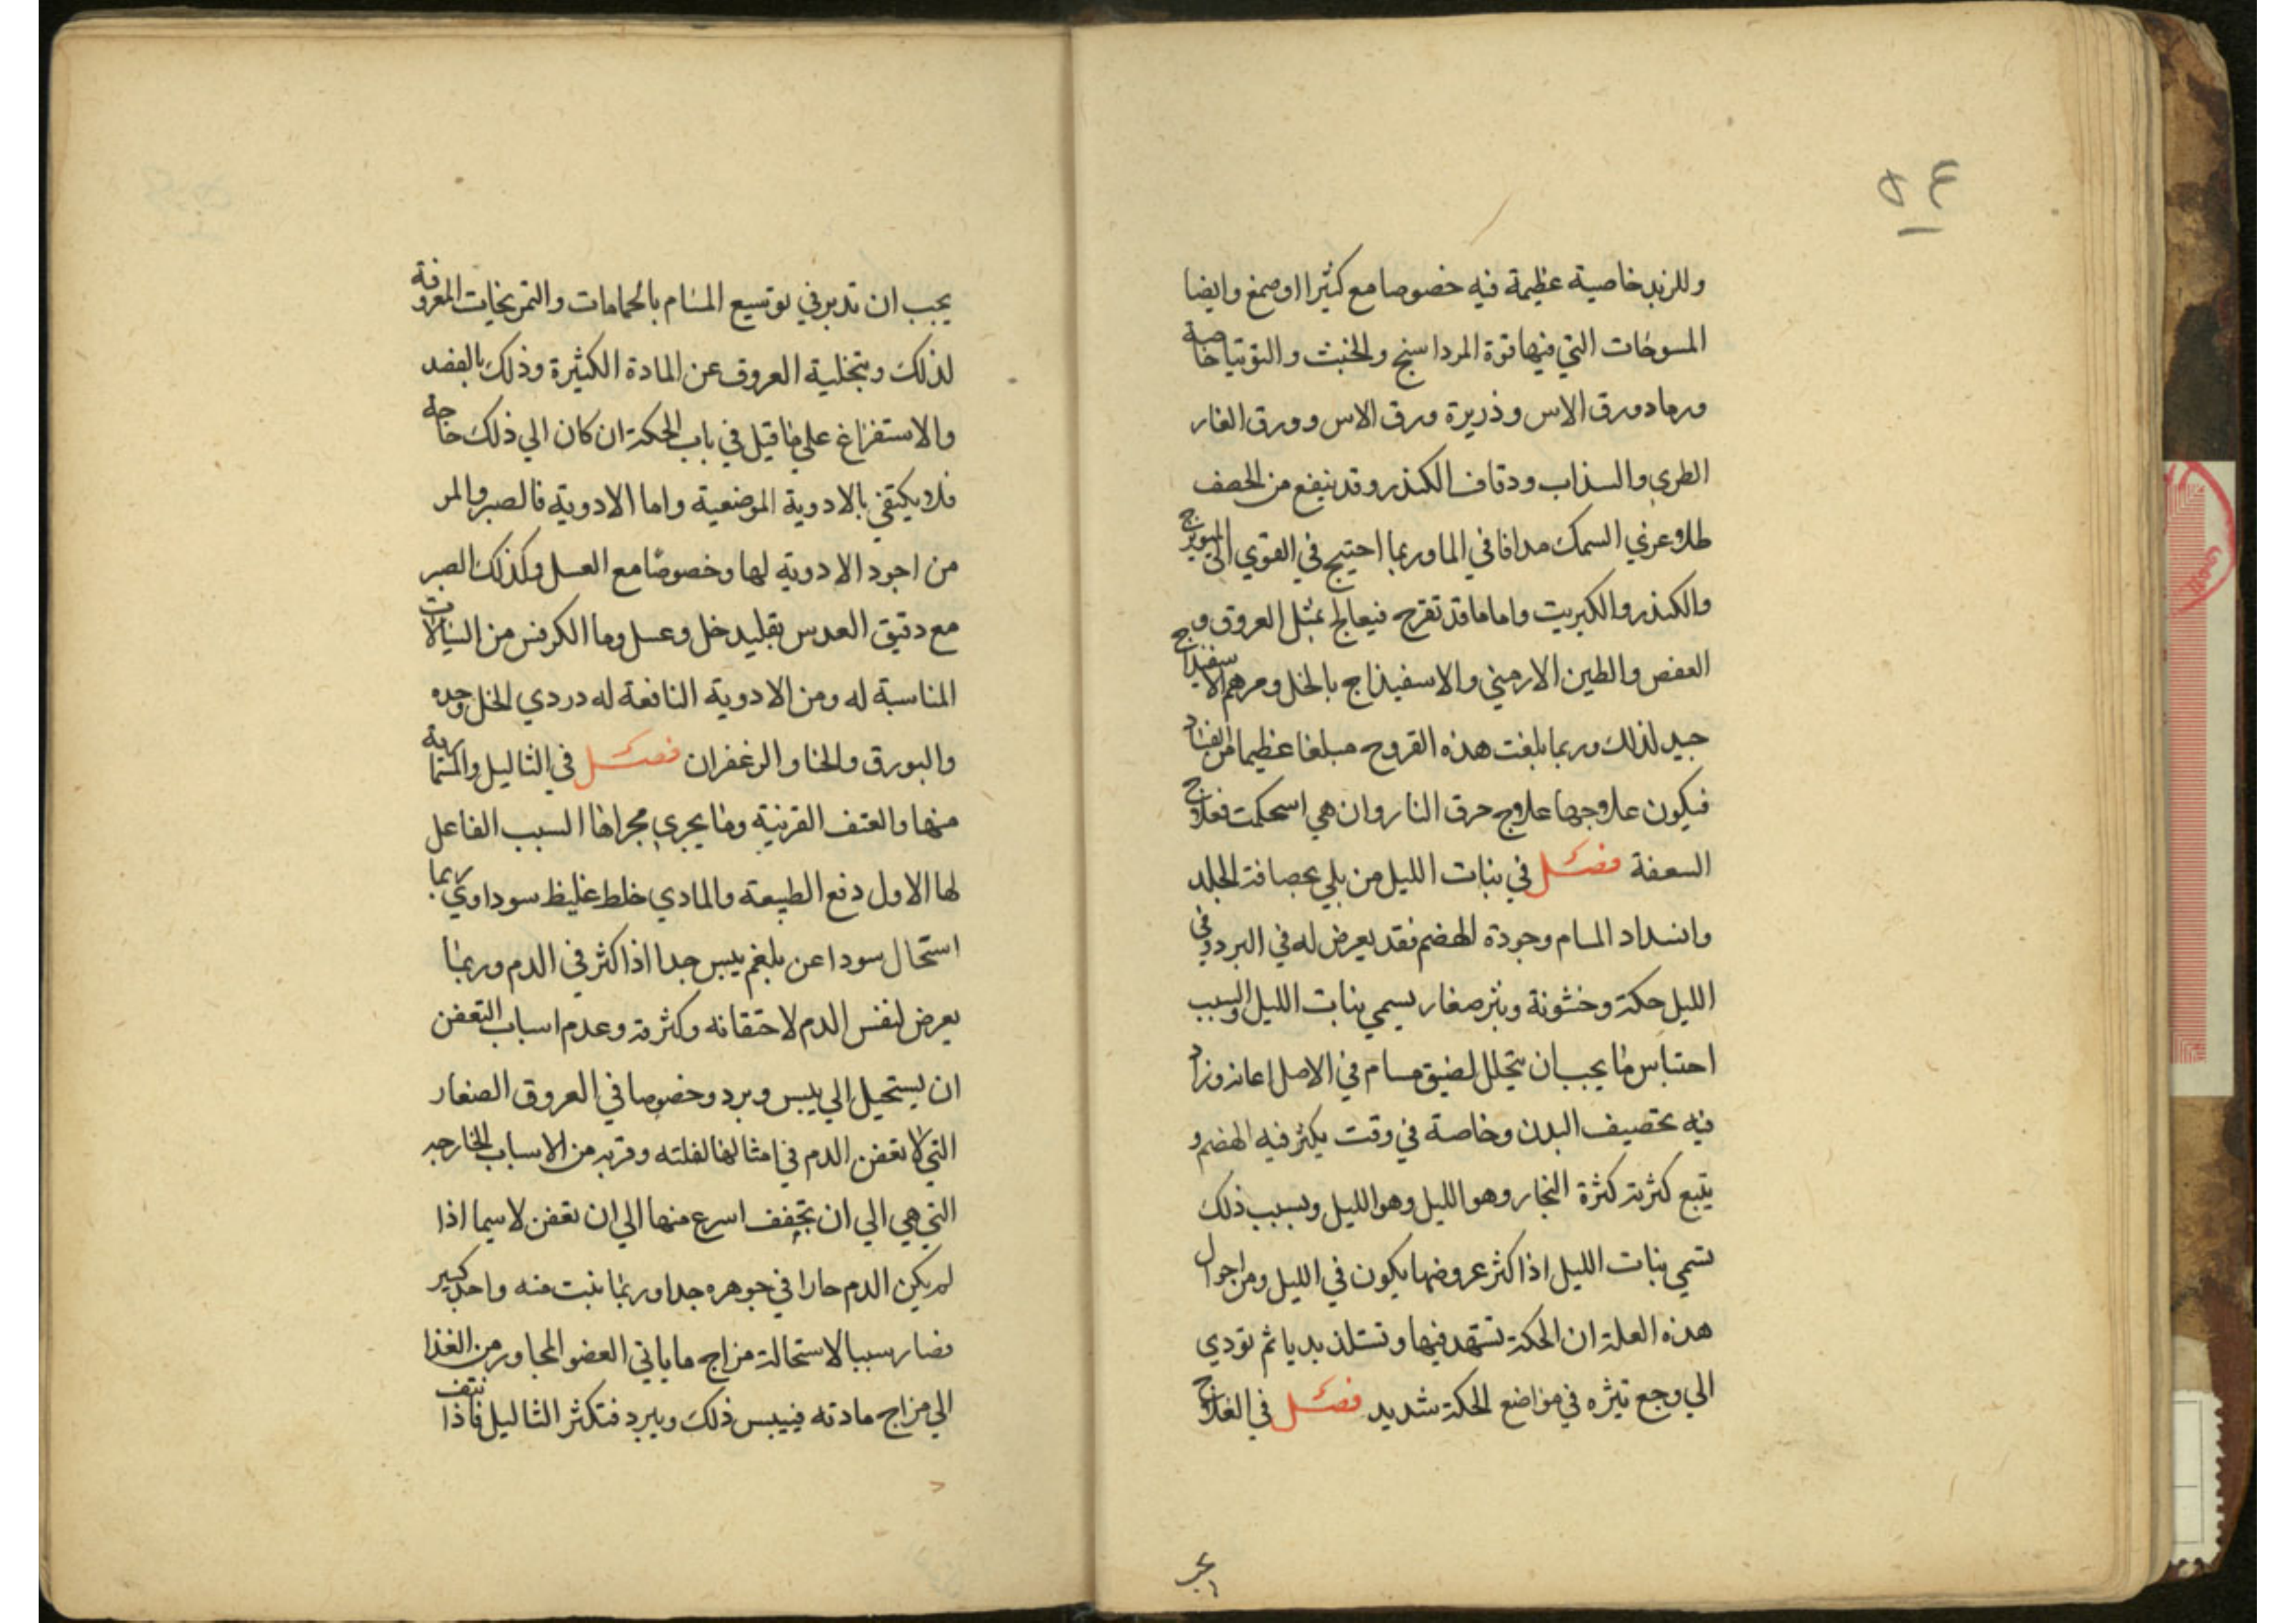 ٥٤
وللزبد خاصية عظيمة فيه خصوصا مع كثيرا اوصمغ وايضا
المسوحات التي فيها قوة المرداسنج والخبث والتوتيا خاصة
ورماد ورق الاس وذريرة ورق الاس وورق الغار
الطري والسذاب ودقاق الكندر وقد ينفع من الحصف
طلاء غري السمك مدافا في الما وربما احتيج في القوي الى الميويزج
والكندر والكبريت واما ما قد تقرح فيعالج بمثل العروق و
العفص والطين الارميني والاسفيذاج بالخل ومرهم الاسفيذاج
جيد لذلك وربما بلغت هذه القروح مبلغا عظيما من الفساد
فيكون علاجها علاج حرق النار وان هي استحكمت فعلاج
السعفة فصل في بنات الليل من بلي بحصافة الجلد
وانسداد المسام وجودة الهضم فقد يعرض له في البرد وفي
الليل حكة وخشونة وبثر صغار يسمي بنات الليل والسبب
احتباس ما يجب ان يتحلل لضيق مسام في الاصل اعانه وزاد
فيه تحصيف البدن وخاصة في وقت يكثر فيه الهضم و
يتبع كثرته كثرة البخار وهو الليل وهو الليل وبسبب ذلك
تسمي بنات الليل اذا كثر عروضها يكون في الليل ومن احوال
هذه العلة ان الحكة تشتهد فيها وتستلذ بديا ثم تودي
الي وجع تيثره في مواضع الحكة شديد فصل في العلاج
يجب
يجب ان تدبر في توسيع المسام بالحمامات والتمريخات المعروفة
لذلك وبتخلية العروق عن المادة الكثيرة وذلك بالفصد
والاستفراغ علي ما قيل في باب الحكة ان كان الي ذلك حاجة
فلا يكتفي بالادوية الموضعية واما الادوية فالصبر والمر
من اجود الادوية لها وخصوصا مع العسل وكذلك الصبر
مع دقيق العدس بقليد خل وعسل وما الكرفس من السيالات
المناسبة له ومن الادوية النافعة له دردي الخل وحده
والبورق والحنا والزعفران فصل في الثاليل والمسمارية
منها والعتف القرنية وما يجري مجراها السبب الفاعل
لها الاول دفع الطبيعة والمادي خلط غليظ سوداوي ربما
استحال سودا عن بلغم يبس جدا اذا كثر في الدم وربما
يعرض لنفس الدم لاحتقانه وكثرته وعدم اسباب التعفن
ان يستحيل الي يبس وبرد وخصوصا في العروق الصغار
التي لا تعفن الدم في امثالها لقلته وقربه من الاسباب الخارجه
التي هي الي ان تجفف اسرع منها الي ان تعفن لاسيما اذا
لم يكن الدم حارا في جوهره جدا وربما نبت منه واحد كبير
فصار سببا لاستحالة مزاج ما ياتي العضو المجاور من الغذا
الي مزاج مادته فييبس ذلك ويبرد فتكثر الثاليل فاذا نتف